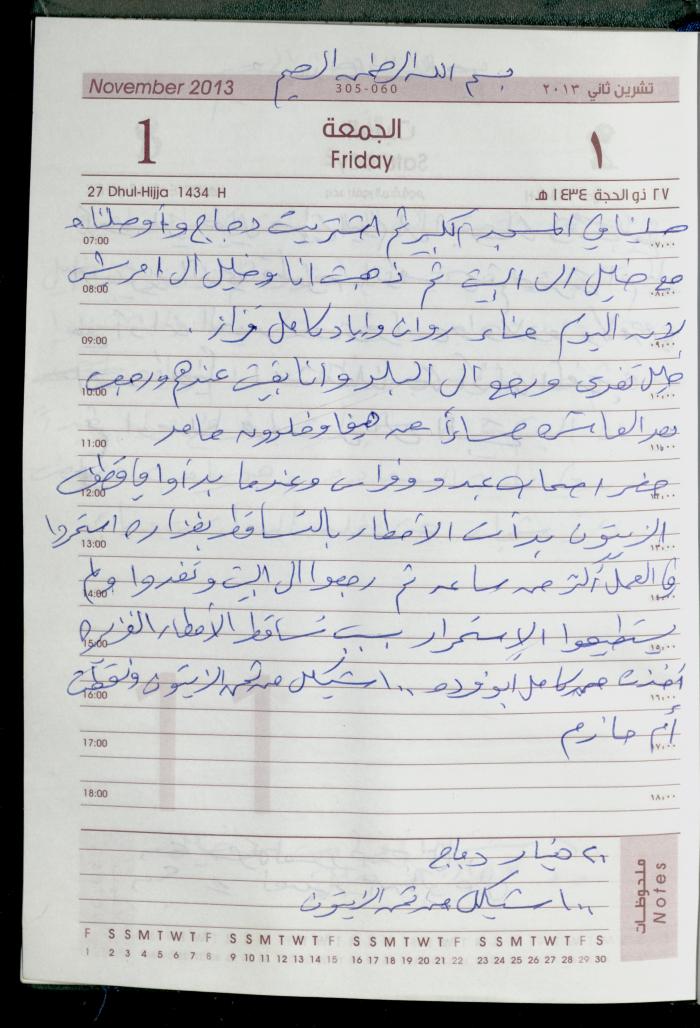 بسم الله الرحمن الرحيم
November 2013 305-060 تشرين ثاني ٢٠١٣
1 الجمعة ١
Friday
27 Dhul-Hijja 1434 H ٢٧ ذو الحجة ١٤٣٤ هـ
صلينا في المسجد الكبير ثم اشتريت دجاج وأوصلناه
07:00 ٠٧,٠٠
مع خليل الى البيت ثم ذهبت انا وخليل الى
08:00 ٠٨,٠٠
اليوم روان واياد كامل فزاز.
09:00 ٠٩,٠٠
خليل تغدى ورجع الى البلد وانا بقيت عندهم ورجعت
10:00 ١٠,٠٠
بعد العاشرة مساءً هيفا وخلدون
11:00 ١١,٠٠
حضر اصحاب عبد وفراس وعندما بدأوا في قطف
12:00 ١٢,٠٠
الزيتون بدأت الأمطار بالتساقط بغزاره استمروا
13:00 ١٣,٠٠
في العمل أكثر من ساعه ثم رجعوا الى البيت وتغدوا ولم
14:00 ١٤,٠٠
يستطيعوا الإستمرار بسبب تساقط الأمطار الغزيره
15:00 ١٥,٠٠
أخذت من كامل ابو ١٠٠ شيكل من ثمن الزيتون
16:00 ١٦,٠٠
أم حازم
17:00 ١٧,٠٠
18:00 ١٨,٠٠
11
٢٠ دجاج
١٠٠ شيكل من ثمن الزيتون
ملحوظات
Notes
F S S M T W T F S S M T W T F S S M T W T F S S M T W T F S
1 2 3 4 5 6 7 8 9 10 11 12 13 14 15 16 17 18 19 20 21 22 23 24 25 26 27 28 29 30